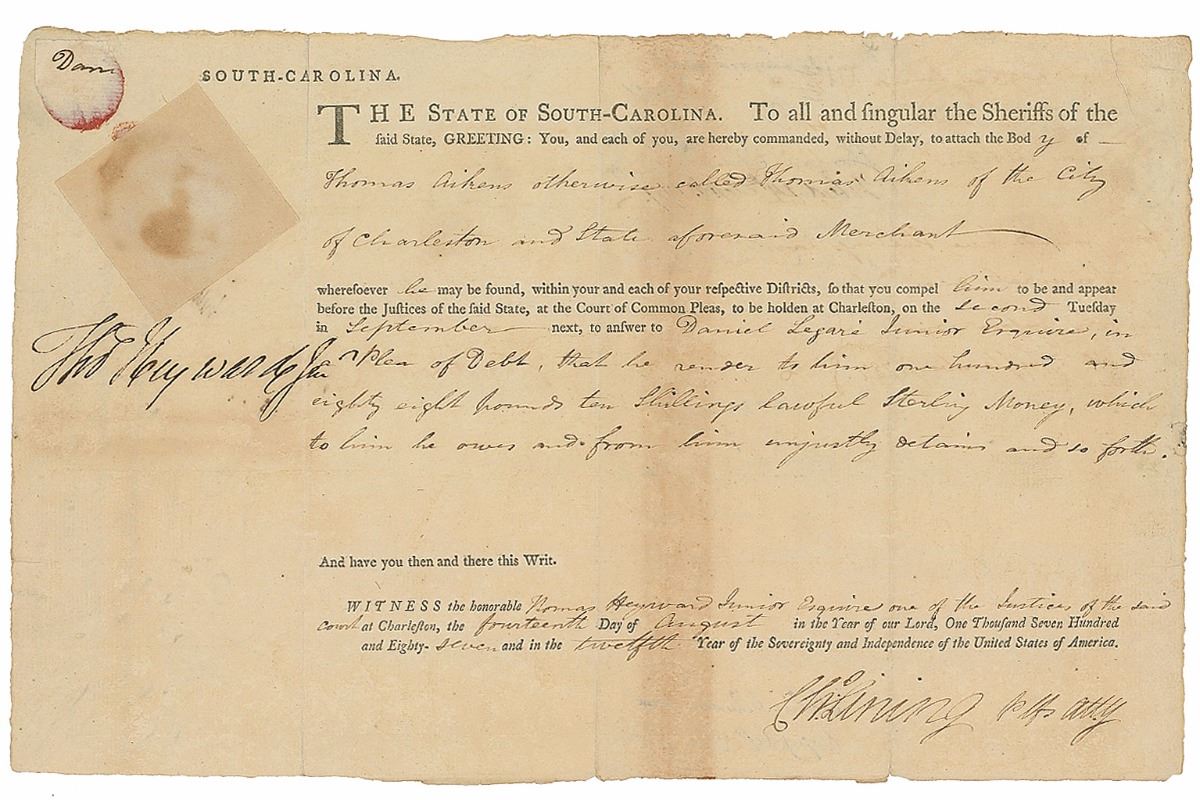 Dan
SOUTH-CAROLINA.
THE STATE OF SOUTH-CAROLINA. To all and ſingular the Sheriffs of the
ſaid State, GREETING: You, and each of you, are hereby commanded, without Delay, to attach the Body of
Thomas Aikens otherwise called Thomas Aikens of the City
of Charleston and State aforesaid Merchant
whereſoever he may be found, within your and each of your reſpective Diſtricts, ſo that you compel him to be and appear
before the Juſtices of the ſaid State, at the Court of Common Pleas, to be holden at Charleſton, on the second Tueſday
in September next, to anſwer to Daniel Legaré Junior Esquire, in
a Plea of Debt, that he render to him one hundred and
eighty eight pounds ten Shillings lawful Sterling Money, which
to him he owes and from him unjustly detains and so forth.
Thos Heyward Jun
And have you then and there this Writ.
WITNESS the honorable Thomas Heyward Junior Esquire one of the Justices of the said
Court at Charleſton, the fourteenth Day of August in the Year of our Lord, One Thouſand Seven Hundred
and Eighty-seven and in the twelfth Year of the Sovereignty and Independence of the United States of America.
Chs Lining Plfs Atty